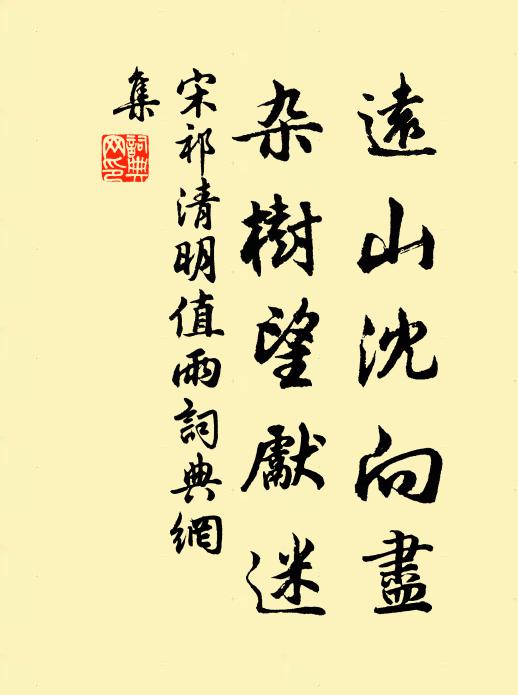 遠山沈向盡
杂樹望獻迷
宋祁清明值雨詞典網
集
詞典
网印